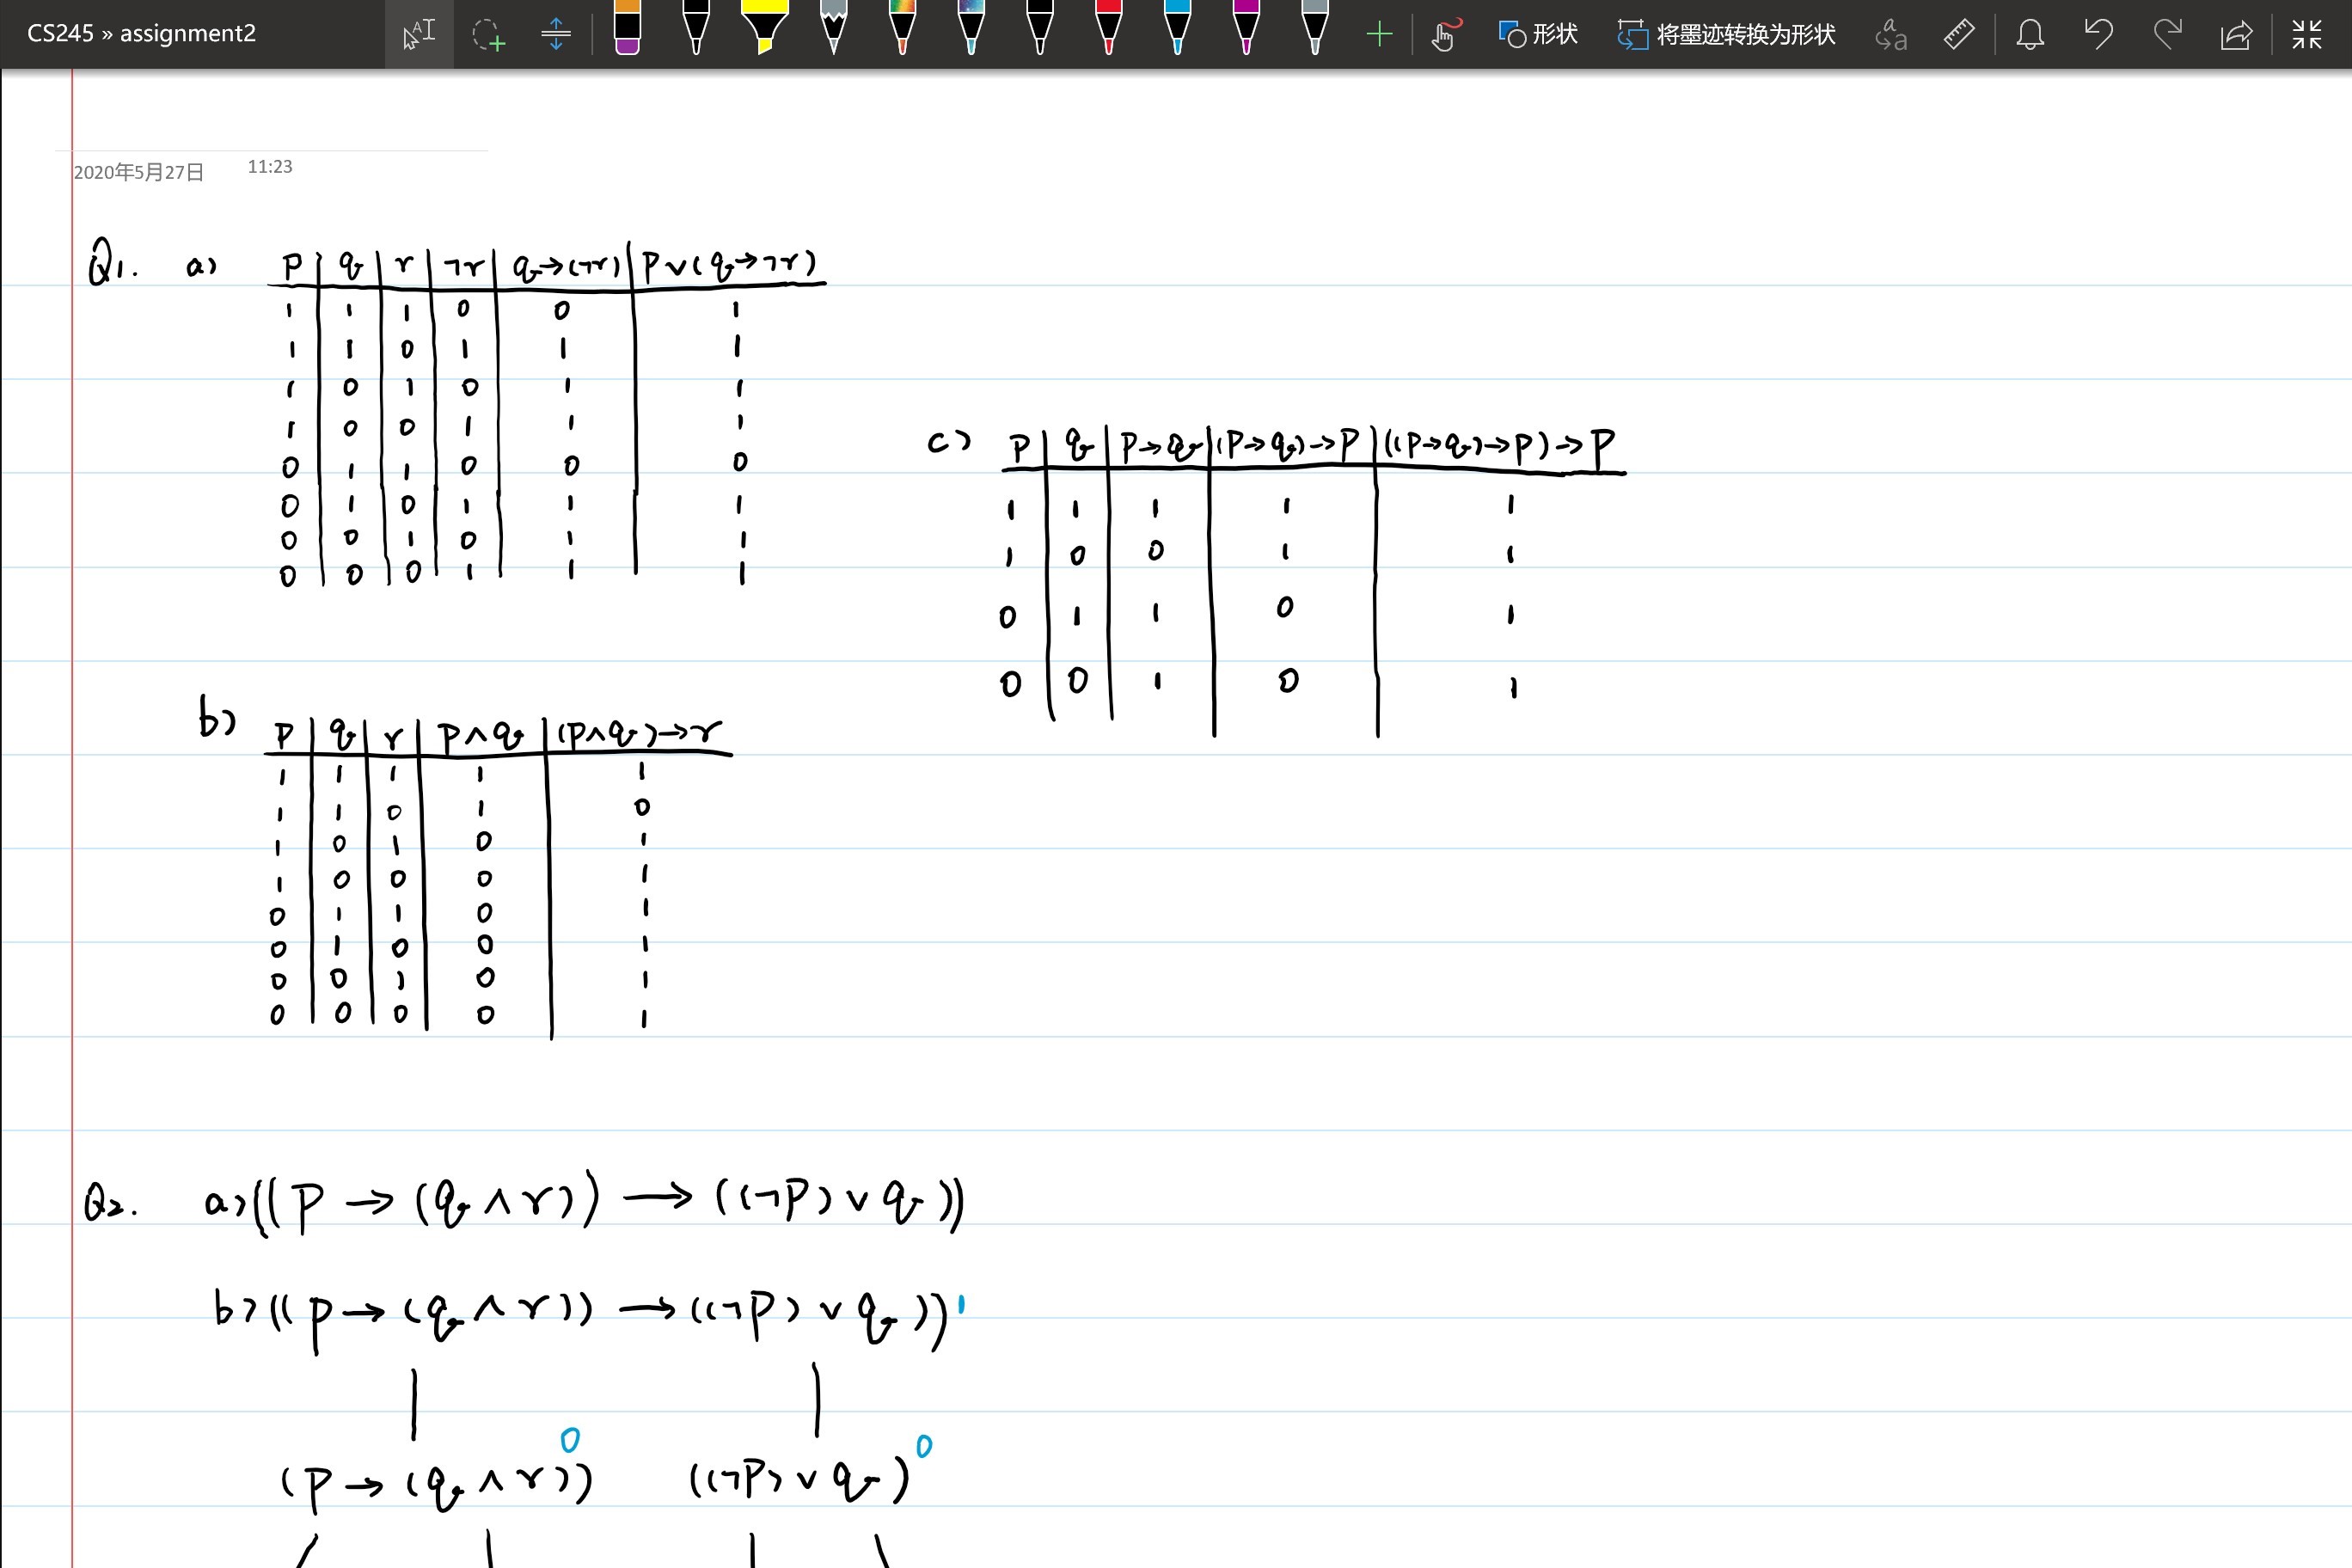 CS245 » assignment2
形状
将墨迹转换为形状
2020年5月27日 11:23
Q1. a) p q r ¬r q→(¬r) p∨(q→¬r)
1 1 1 0 0 1
1 1 0 1 1 1
1 0 1 0 1 1
1 0 0 1 1 1
0 1 1 0 0 0
0 1 0 1 1 1
0 0 1 0 1 1
0 0 0 1 1 1
b) p q r p∧q (p∧q)→r
1 1 1 1 1
1 1 0 1 0
1 0 1 0 1
1 0 0 0 1
0 1 1 0 1
0 1 0 0 1
0 0 1 0 1
0 0 0 0 1
c) p q p→q (p→q)→p ((p→q)→p)→p
1 1 1 1 1
1 0 0 1 1
0 1 1 0 1
0 0 1 0 1
Q2. a) ((p→(q∧r))→((¬p)∨q))
b) ((p→(q∧r))→((¬p)∨q)) 1
(p→(q∧r)) 0 ((¬p)∨q) 0